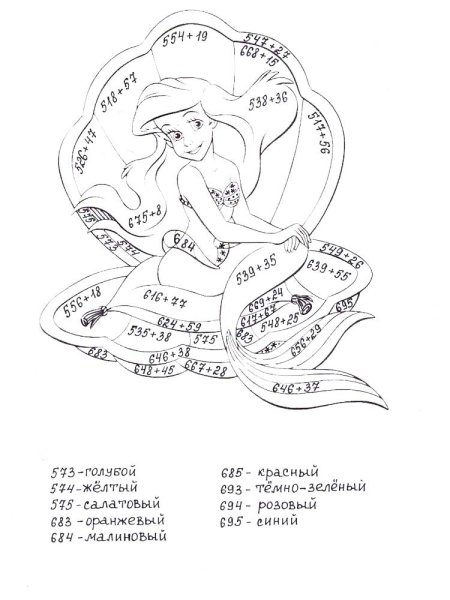 554+19
547+27
668+15
518+57
538+36
517+56
526+47
575
573
574
675+8
684
549+26
639+55
539+35
556+18
616+77
669+24
617+67
695
624+59
548+25
535+38
575
683
656+29
683
646+38
648+45
667+28
646+37
573-голубой
574-жёлтый
575-салатовый
683-оранжевый
684-малиновый
685- красный
693-тёмно-зелёный
694- розовый
695-синий